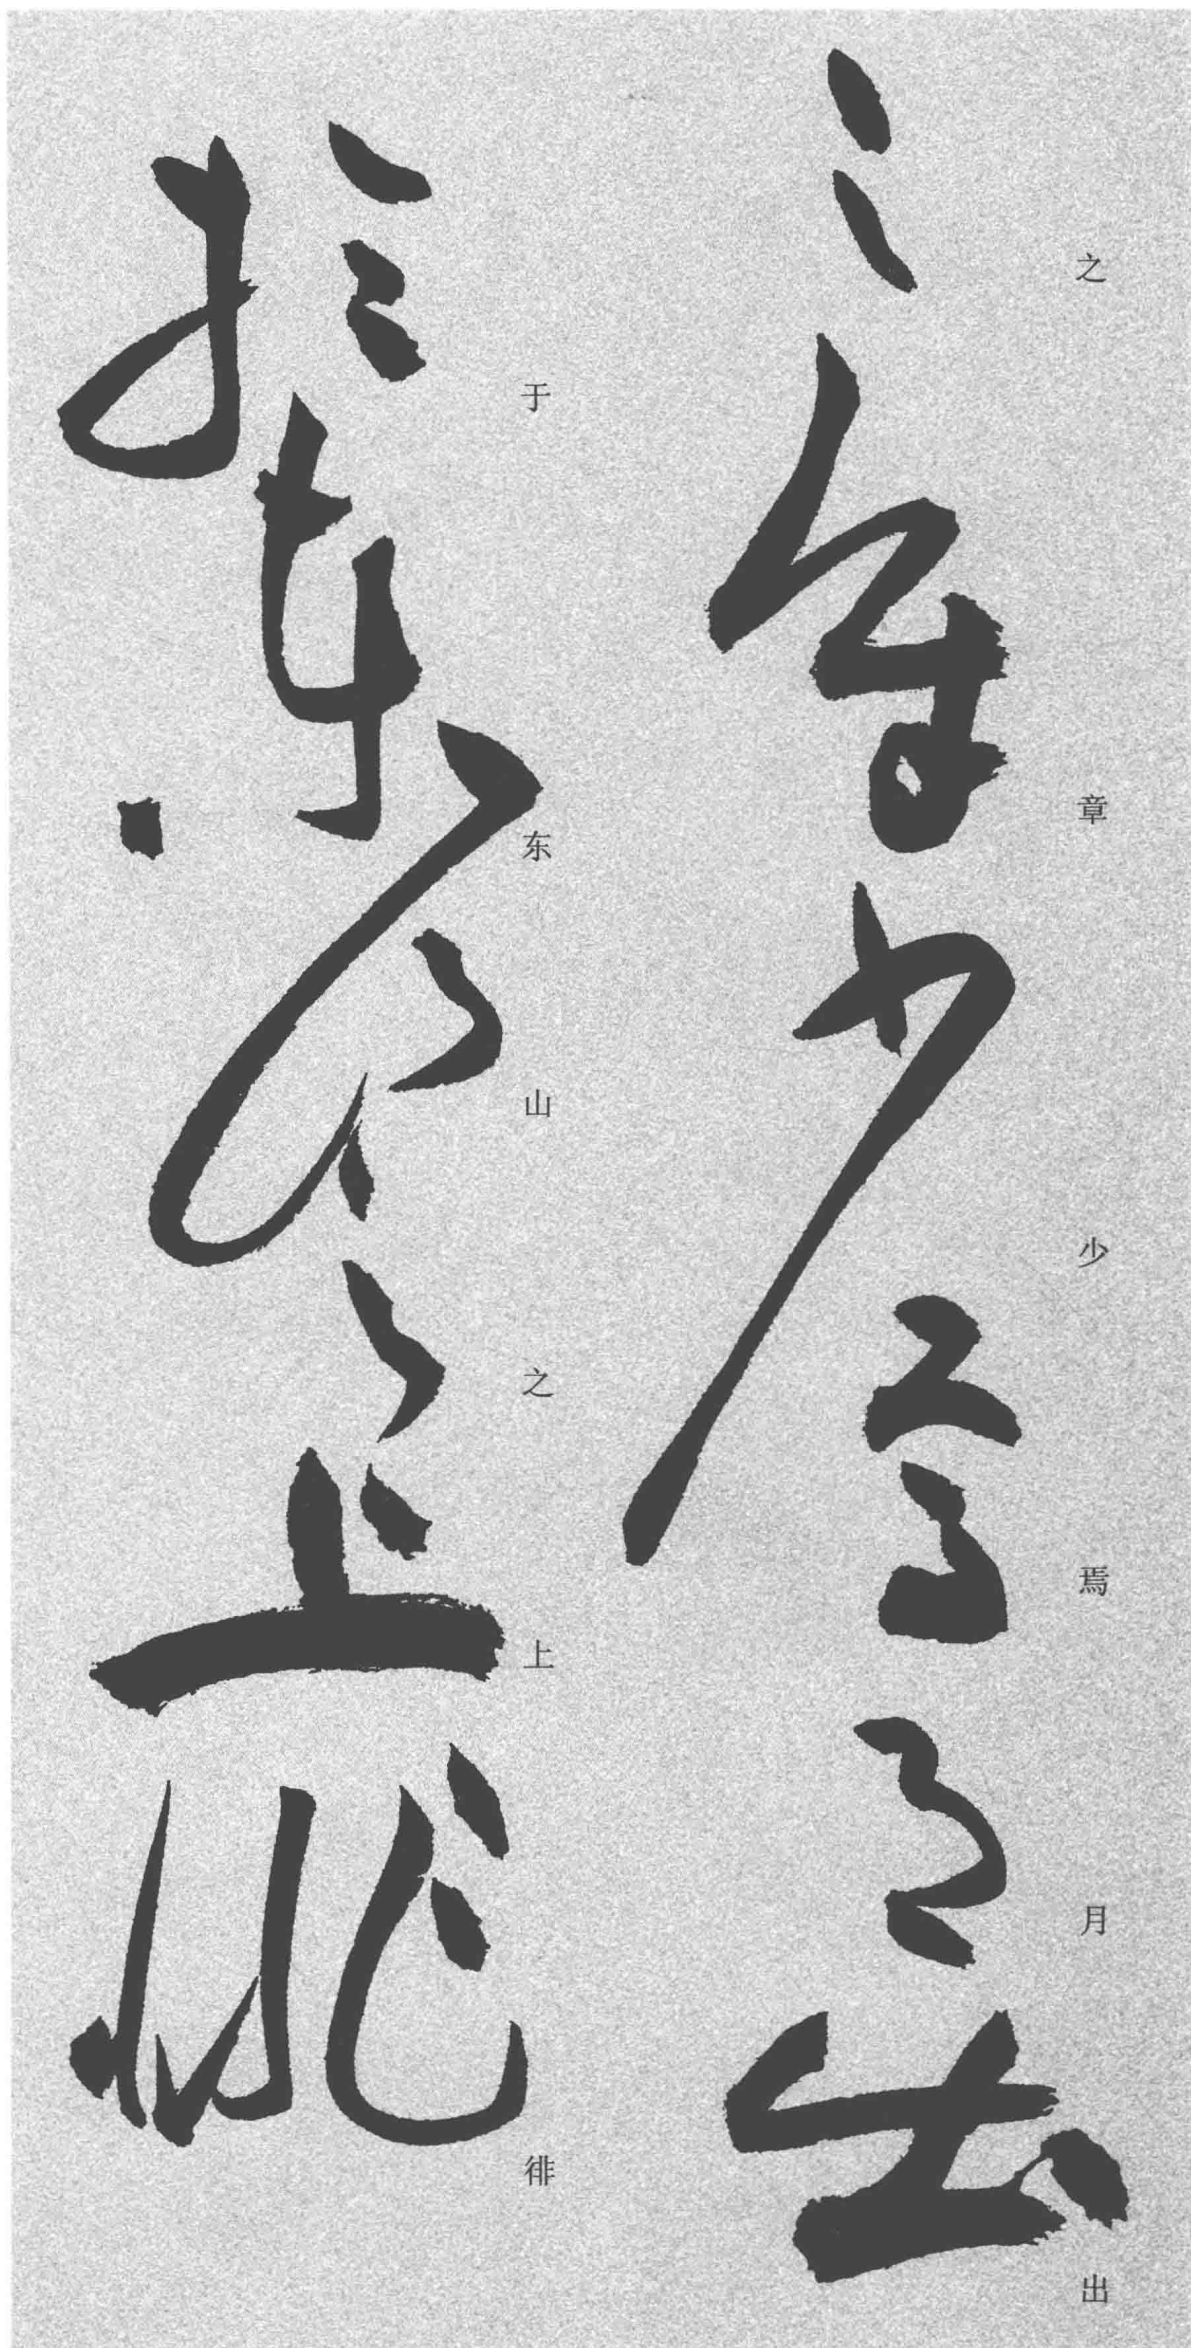 之章少焉月出
于东山之上徘